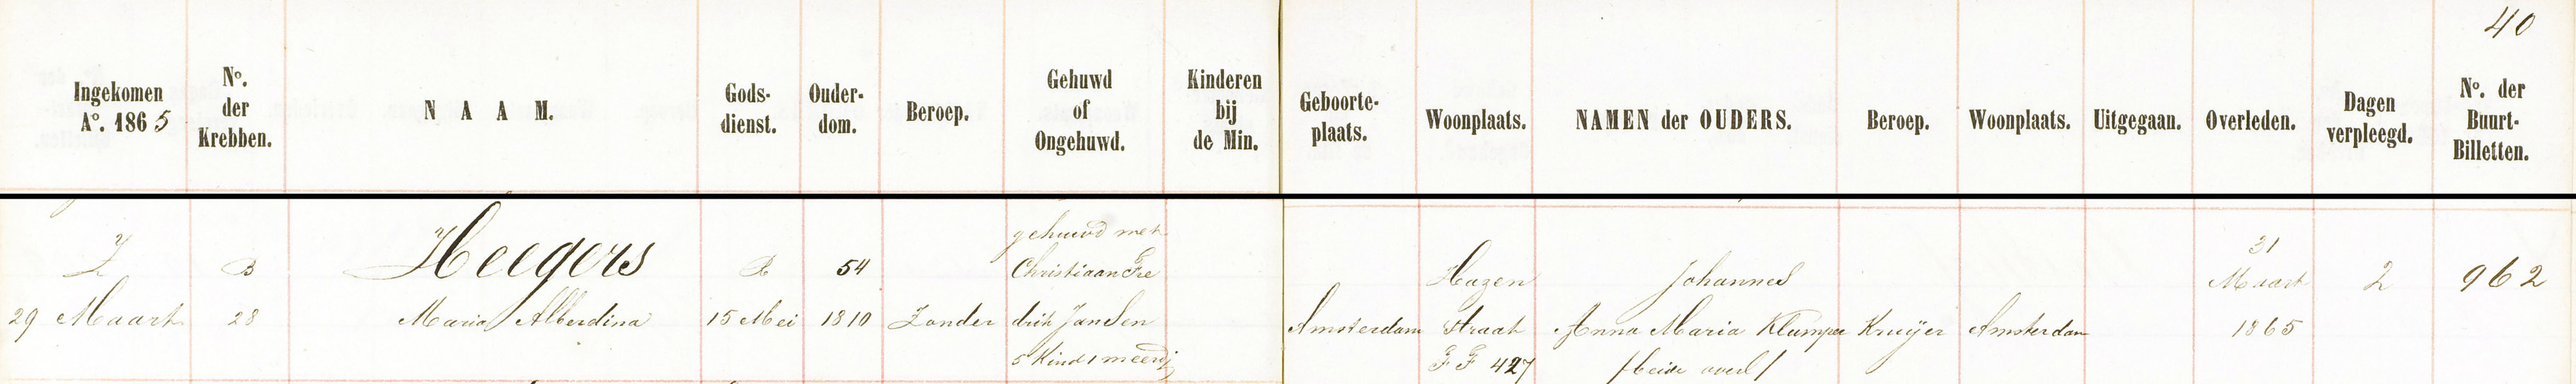 40
Ingekomen
A°. 1865
N°.
der
Krebben.
NAAM.
Gods-
dienst.
Ouder-
dom.
Beroep.
Gehuwd
of
Ongehuwd.
Kinderen
bij
de Min.
Geboorte-
plaats.
Woonplaats.
NAMEN der OUDERS.
Beroep.
Woonplaats.
Uitgegaan.
Overleden.
Dagen
verpleegd.
N°. der
Buurt-
Billetten.
Z
29 Maart
B
28
Heegers
Maria Alberdina
R
15 Mei
54
1810
Zonder
gehuwd met
Christiaan Fre
drik Jansen
5 Kind 1 meerdj
Amsterdam
Hazen
Straat
FF 427
Johannes
Anna Maria Klumper
/beide overl/
Kruijer
Amsterdam
31
Maart
1865
2
962